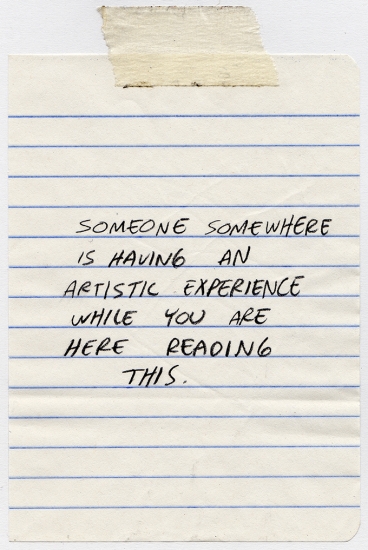 SOMEONE SOMEWHERE
IS HAVING AN
ARTISTIC EXPERIENCE
WHILE YOU ARE
HERE READING
THIS.